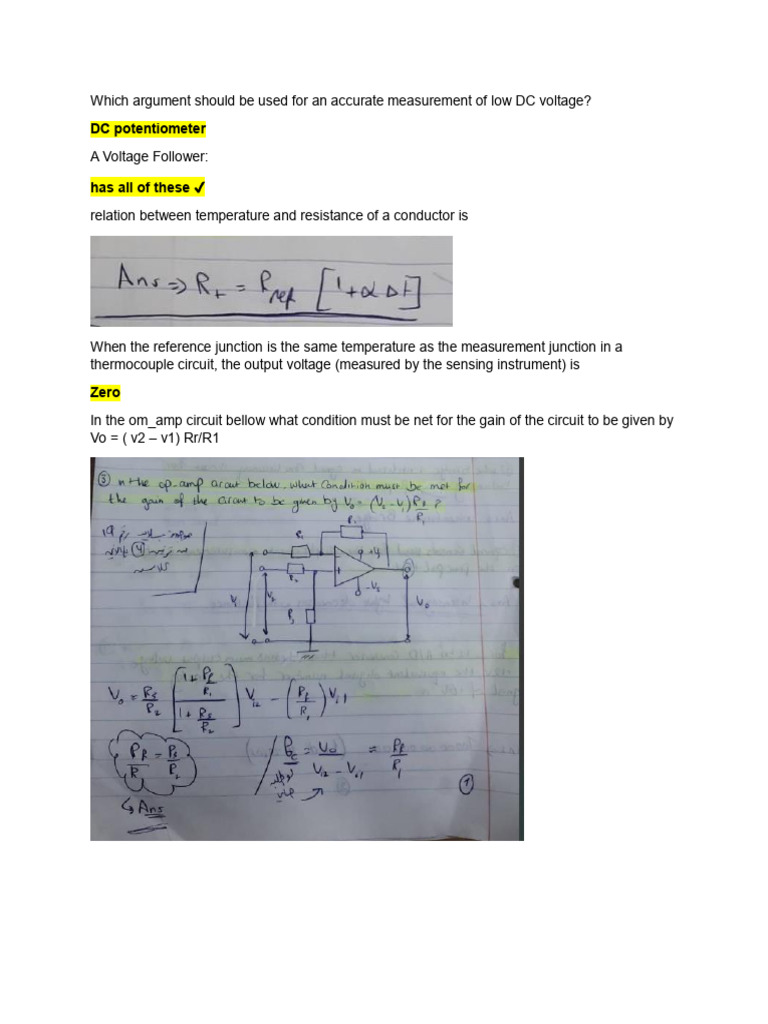 Which argument should be used for an accurate measurement of low DC voltage?
DC potentiometer
A Voltage Follower:
has all of these ✓
relation between temperature and resistance of a conductor is
Ans => Rt = Rref [1+α Δt]
When the reference junction is the same temperature as the measurement junction in a
thermocouple circuit, the output voltage (measured by the sensing instrument) is
Zero
In the om_amp circuit bellow what condition must be net for the gain of the circuit to be given by
Vo = ( v2 – v1) Rr/R1
③ n the op-amp circuit below, what condition must be met for
the gain of the circuit to be given by Vo = (V2 - V1) Rf/R1 ?
R1
R2
R3
V1
V2
Vo
Vo = R3/R2 [(1+ Rf/R1)/(1+ R3/R2)] Vi2 - (Rf/R1) Vi1
Rf/R1 = R3/R2
= Rf/R1
↳ Ans
①